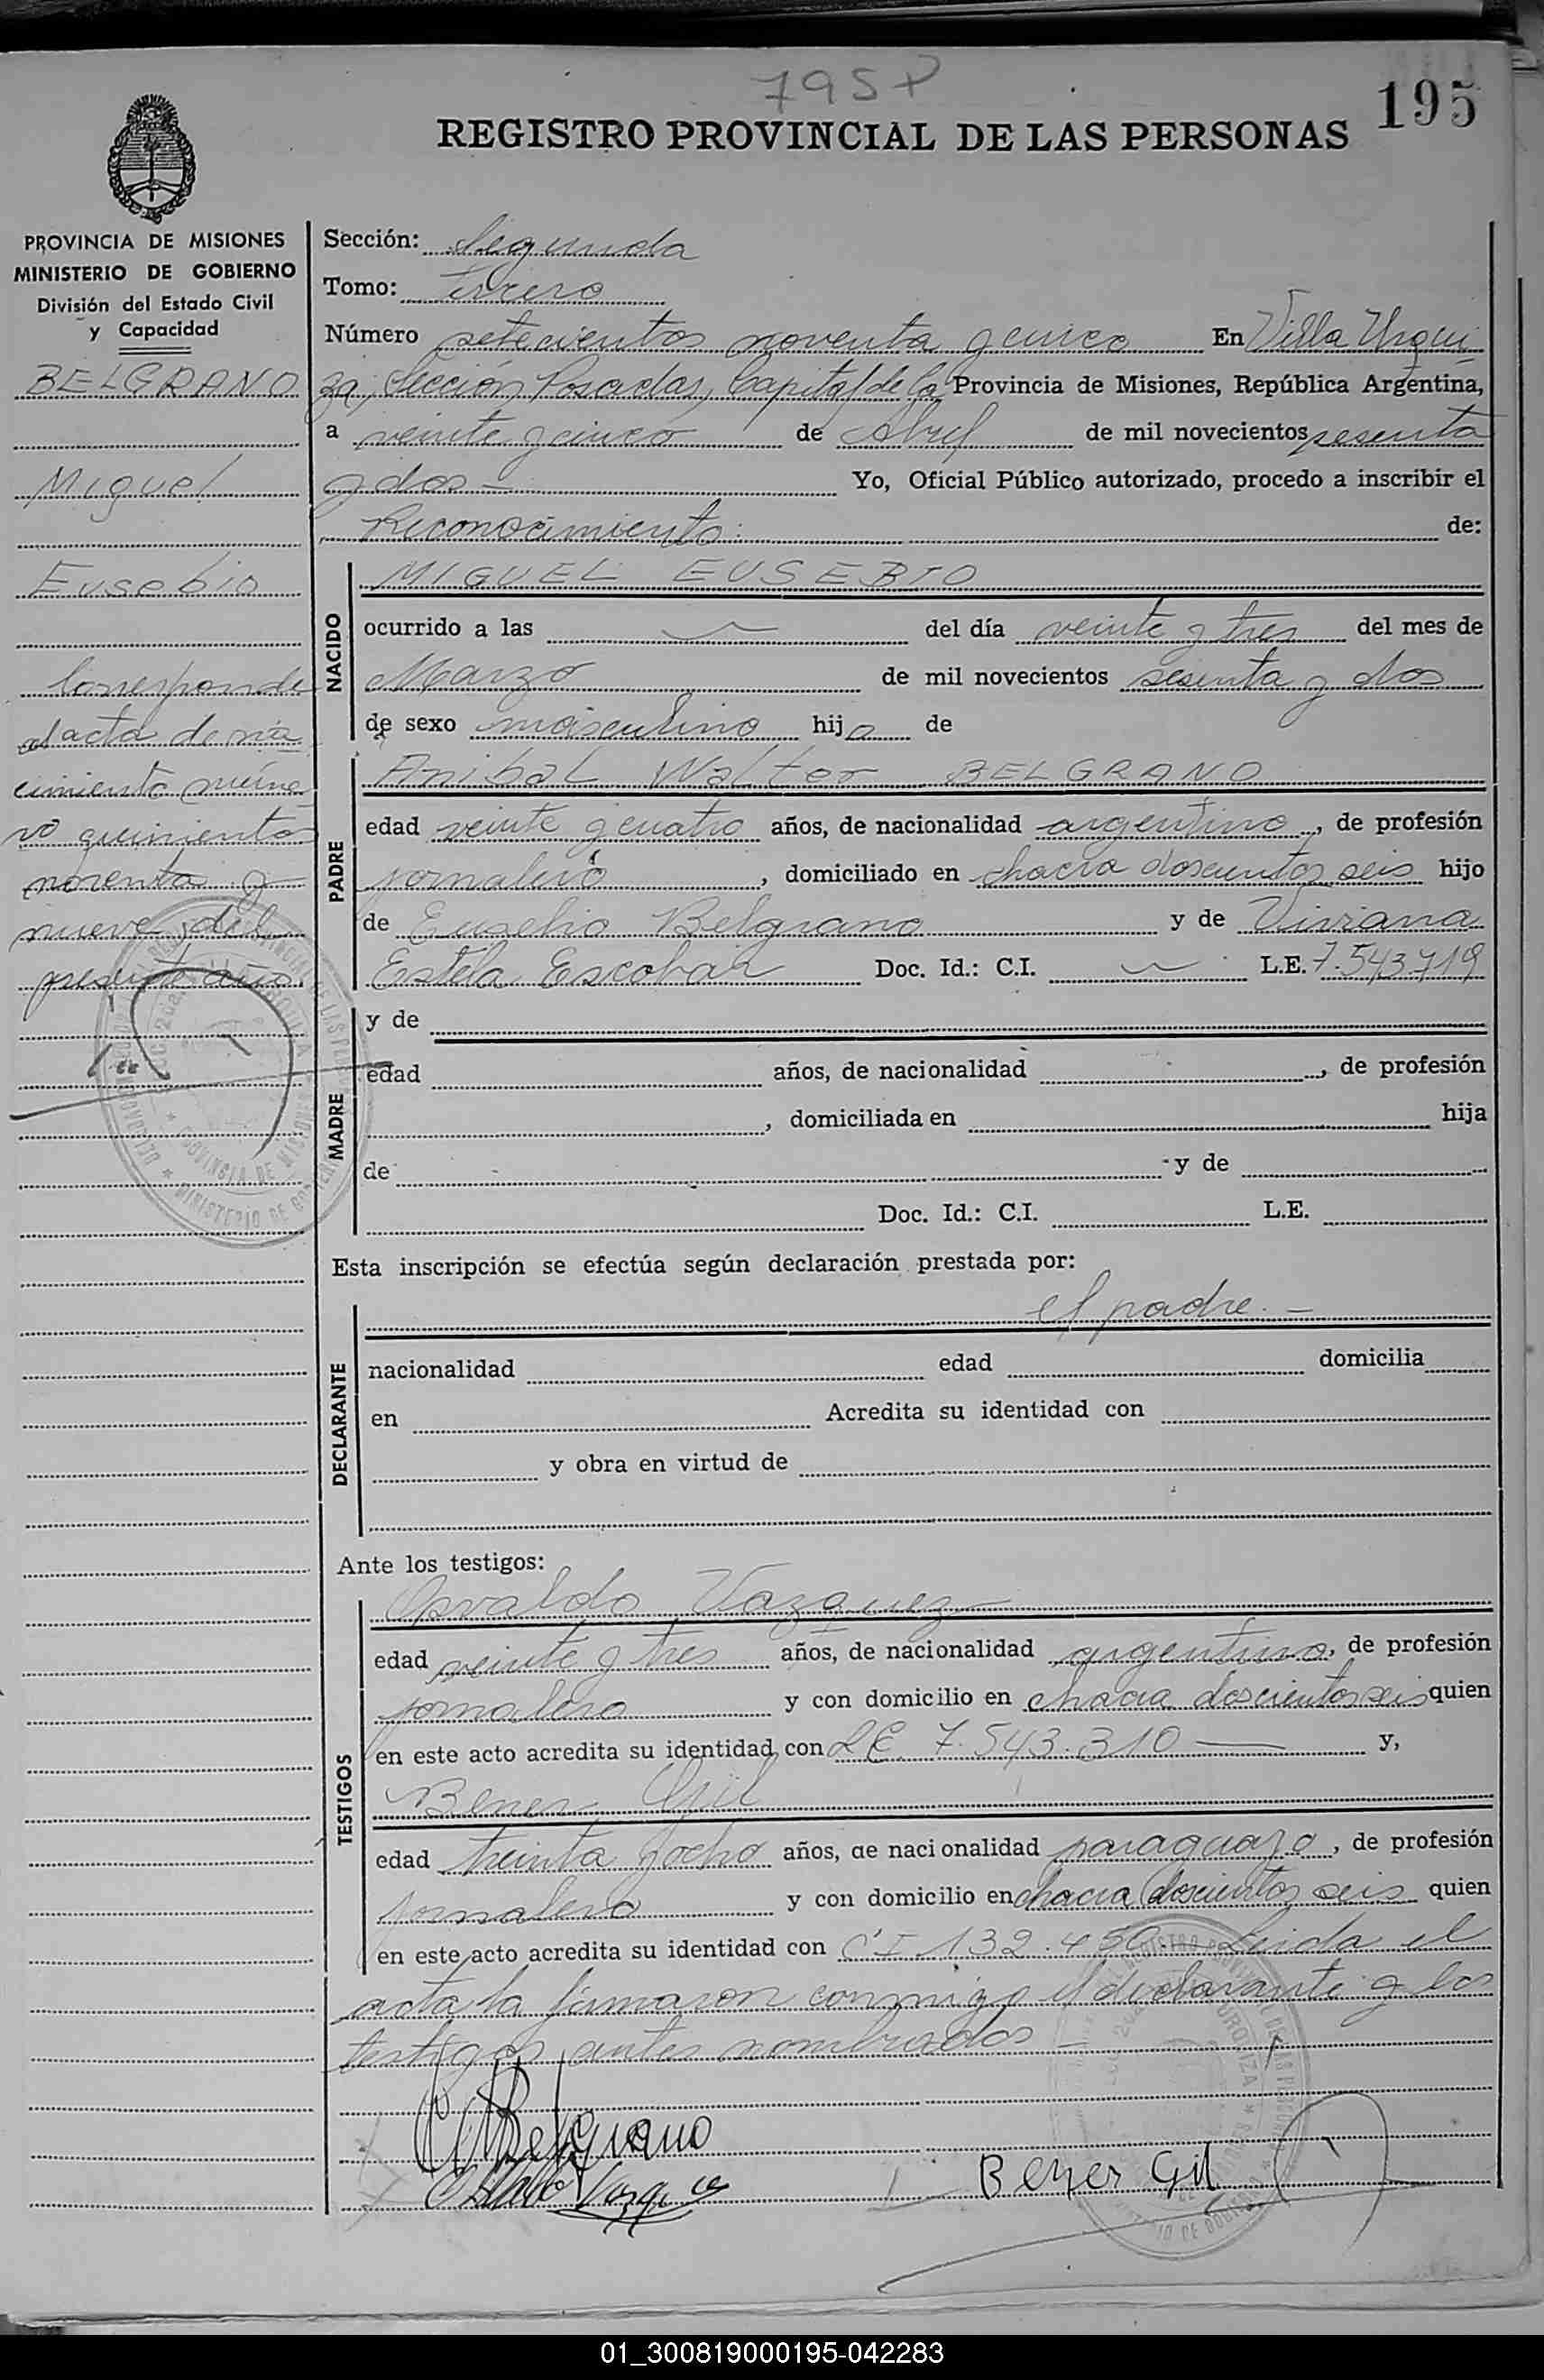 795 P
195
REGISTRO PROVINCIAL DE LAS PERSONAS
PROVINCIA DE MISIONES
MINISTERIO DE GOBIERNO
División del Estado Civil
y Capacidad
BELGRANO
Miguel
Eusebio
Corresponde
al acta de na
cimiento núme
ro quinientos
noventa y
nueve del
presente año.
Sección: Segunda
Tomo: Tercero
Número setecientos noventa y cinco En Villa Urqui
za, Sección Posadas, Capital de la Provincia de Misiones, República Argentina,
a veinte y cinco de Abril de mil novecientos sesenta
y dos - Yo, Oficial Público autorizado, procedo a inscribir el
Reconocimiento: de:
NACIDO
MIGUEL EUSEBIO
ocurrido a las del día veinte y tres del mes de
Marzo de mil novecientos sesenta y dos
de sexo masculino hijo de
PADRE
Anibal Walter BELGRANO
edad veinte y cuatro años, de nacionalidad argentino, de profesión
jornalero, domiciliado en chacra doscientos seis hijo
de Eusebio Belgrano y de Viviana
Estela Escobar Doc. Id.: C.I. L.E. 7.543.719
MADRE
y de
edad años, de nacionalidad , de profesión
, domiciliada en hija
de y de
Doc. Id.: C.I. L.E.
Esta inscripción se efectúa según declaración prestada por:
el padre. -
DECLARANTE
nacionalidad edad domicilia
en Acredita su identidad con
y obra en virtud de
Ante los testigos:
TESTIGOS
Osvaldo Vazquez
edad veinte y tres años, de nacionalidad argentino, de profesión
jornalero y con domicilio en chacra doscientos seis quien
en este acto acredita su identidad con LE. 7.543.310 y,
Bener Gil
edad treinta y ocho años, de nacionalidad paraguayo, de profesión
jornalero y con domicilio en chacra doscientos seis quien
en este acto acredita su identidad con C.I 132.450. Leida el
acta la firmaron conmigo el declarante y los
testigos antes nombrados -
Belgrano
Osvaldo Vazquez
Bener Gil
01_300819000195-042283